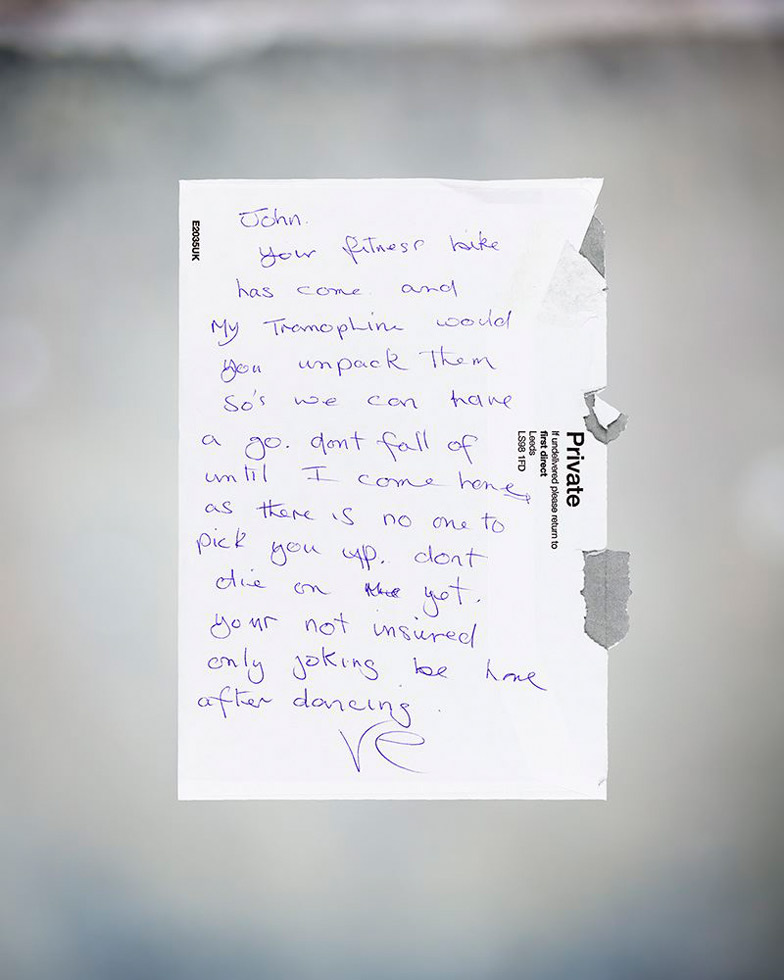 John.
your fitness bike
has come and
My Tramophline would
you unpack Them
So's we can have
a go. dont fall of
until I come home,
as there is no one to
pick you up. dont
die on yet.
your not insured
only joking be home
after dancing.
Ve
E2035UK
Private
If undelivered please return to
first direct
Leeds
LS98 1FD